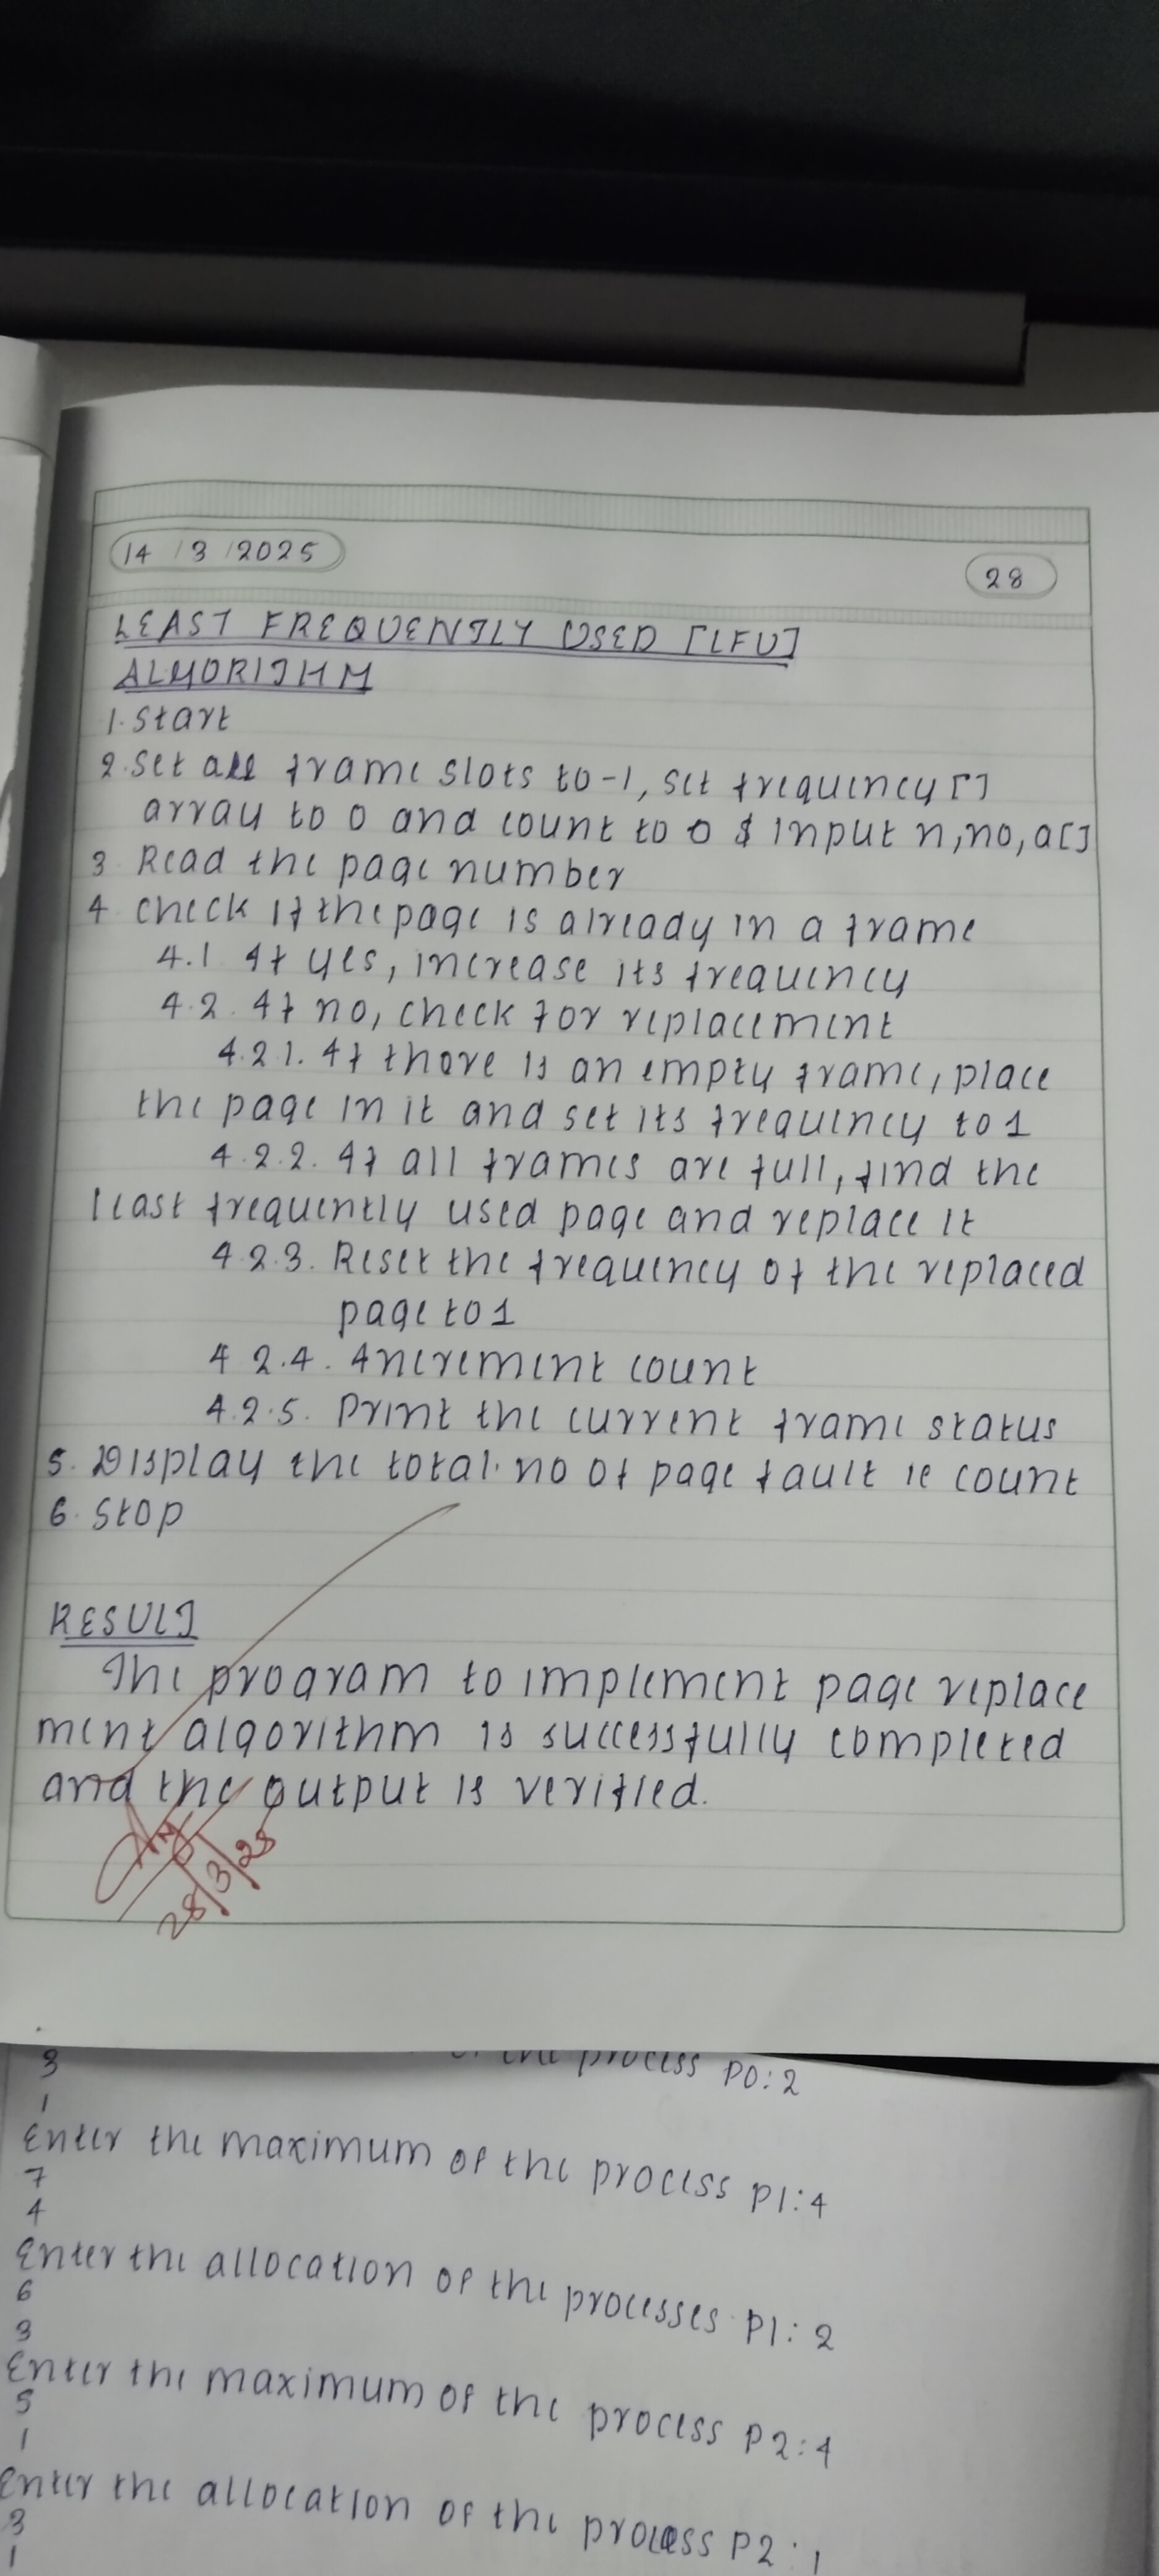 14/3/2025
28
LEAST FREQUENTLY USED [LFU]
ALGORITHM
1. Start
2. Set all frame slots to -1, set frequency[]
array to 0 and count to 0 & input n, no, a[]
3 Read the page number
4 check if the page is already in a frame
4.1 If yes, increase its frequency
4.2. If no, check for replacement
4.2.1. If there is an empty frame, place
the page in it and set its frequency to 1
4.2.2. If all frames are full, find the
least frequently used page and replace it
4.2.3. Reset the frequency of the replaced
page to 1
4.2.4. Increment count
4.2.5. Print the current frame status
5. Display the total no of page fault ie count
6. Stop
RESULT
The program to implement page replace
ment algorithm is successfully completed
and the output is verified.
28/3/25
3
the process P0:2
1
Enter the maximum of the process P1:4
7
4
Enter the allocation of the processes P1:2
6
3
Enter the maximum of the process P2:4
5
1
Enter the allocation of the process P2:1
3
1